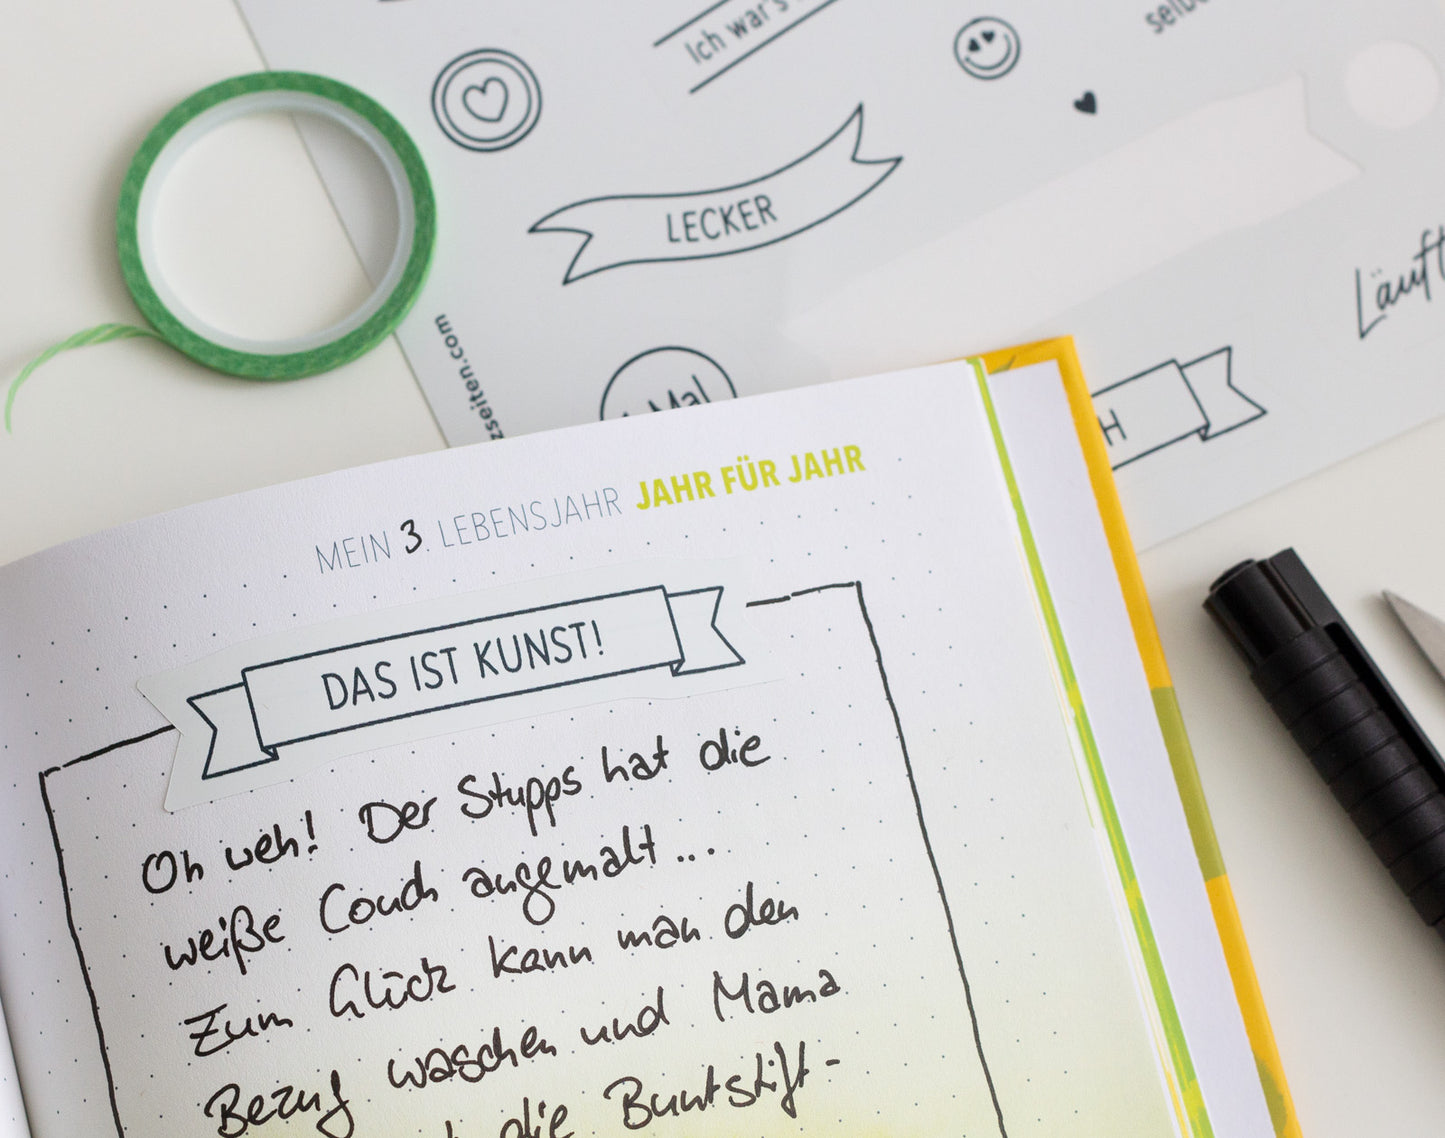 Ich war's
selbe
LECKER
Läuft
zseiten.com
Mal
H
MEIN 3. LEBENSJAHR JAHR FÜR JAHR
DAS IST KUNST!
Oh weh! Der Stupps hat die
weiße Couch angemalt...
Zum Glück kann man den
Bezug waschen und Mama
die Buntstift-